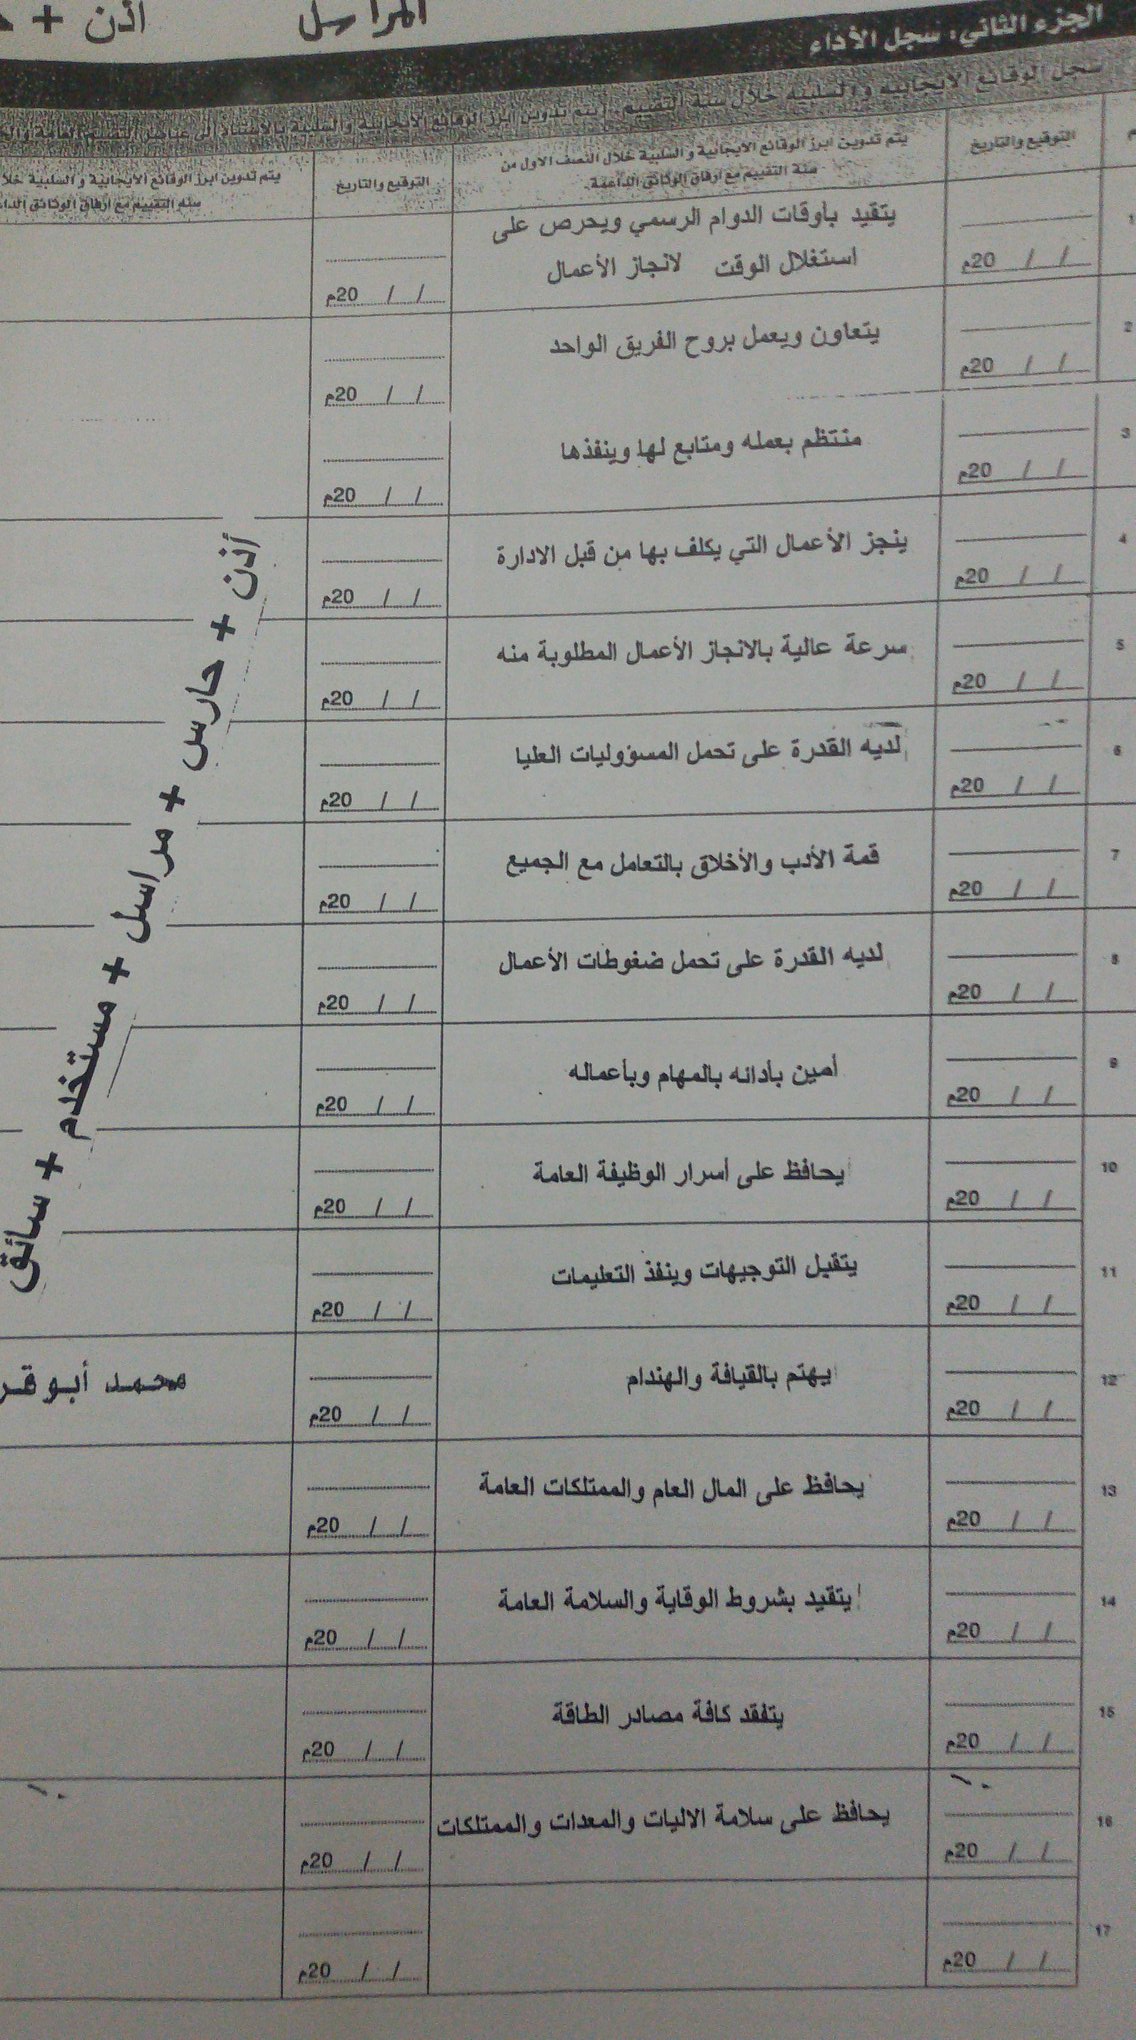 المراسل
أذن +
الجزء الثاني: سجل الأداء
سجل الوقائع الايجابية والسلبية خلال سنة التقييم، (يتم تدوين ابرز الوقائع الايجابية والسلبية بالاستناد الى
م
التوقيع والتاريخ
يتم تدوين ابرز الوقائع الايجابية والسلبية خلال النصف الاول من
سنة التقييم مع ارفاق الوثائق الداعمة.
التوقيع والتاريخ
يتم تدوين ابرز الوقائع الايجابية والسلبية
سنة التقييم مع ارفاق الوثائق
1
يتقيد بأوقات الدوام الرسمي ويحرص على
استغلال الوقت لانجاز الأعمال
/ / 20م
/ / 20م
2
يتعاون ويعمل بروح الفريق الواحد
/ / 20م
/ / 20م
3
منتظم بعمله ومتابع لها وينفذها
/ / 20م
/ / 20م
4
ينجز الأعمال التي يكلف بها من قبل الادارة
/ / 20م
/ / 20م
5
سرعة عالية بالانجاز الأعمال المطلوبة منه
/ / 20م
/ / 20م
6
لديه القدرة على تحمل المسؤوليات العليا
/ / 20م
/ / 20م
7
قمة الأدب والأخلاق بالتعامل مع الجميع
/ / 20م
/ / 20م
8
لديه القدرة على تحمل ضغوطات الأعمال
/ / 20م
/ / 20م
9
أمين بأدائه بالمهام وبأعماله
/ / 20م
/ / 20م
10
يحافظ على أسرار الوظيفة العامة
/ / 20م
/ / 20م
11
يتقبل التوجيهات وينفذ التعليمات
/ / 20م
/ / 20م
12
يهتم بالقيافة والهندام
/ / 20م
/ / 20م
محمد أبو قر
13
يحافظ على المال العام والممتلكات العامة
/ / 20م
/ / 20م
14
يتقيد بشروط الوقاية والسلامة العامة
/ / 20م
/ / 20م
15
يتفقد كافة مصادر الطاقة
/ / 20م
/ / 20م
16
يحافظ على سلامة الاليات والمعدات والممتلكات
/ / 20م
/ / 20م
17
/ / 20م
/ / 20م
أذن + حارس + مراسل + مستخدم + سائق